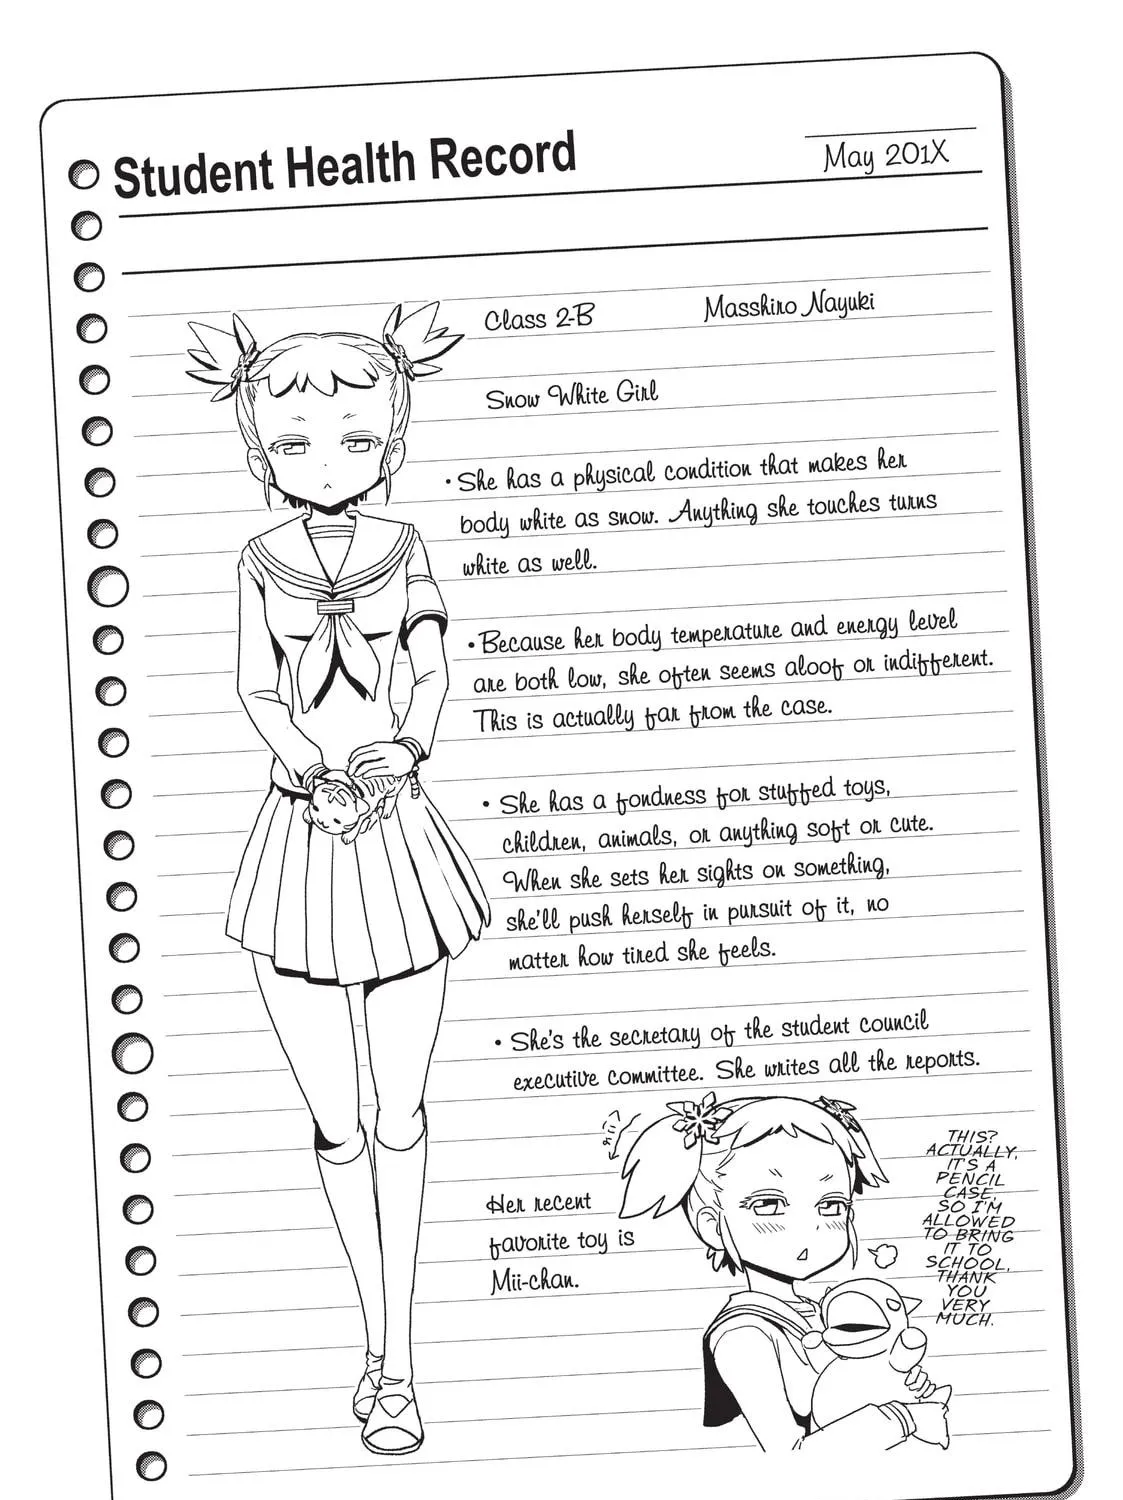 Student Health Record
May 201X
Class 2-B
Masshiro Nayuki
Snow White Girl
• She has a physical condition that makes her
body white as snow. Anything she touches turns
white as well.
• Because her body temperature and energy level
are both low, she often seems aloof or indifferent.
This is actually far from the case.
• She has a fondness for stuffed toys,
children, animals, or anything soft or cute.
When she sets her sights on something,
she'll push herself in pursuit of it, no
matter how tired she feels.
• She's the secretary of the student council
executive committee. She writes all the reports.
Her recent
favorite toy is
Mii-chan.
THIS?
ACTUALLY,
IT'S A
PENCIL
CASE,
SO I'M
ALLOWED
TO BRING
IT TO
SCHOOL,
THANK
YOU
VERY
MUCH.